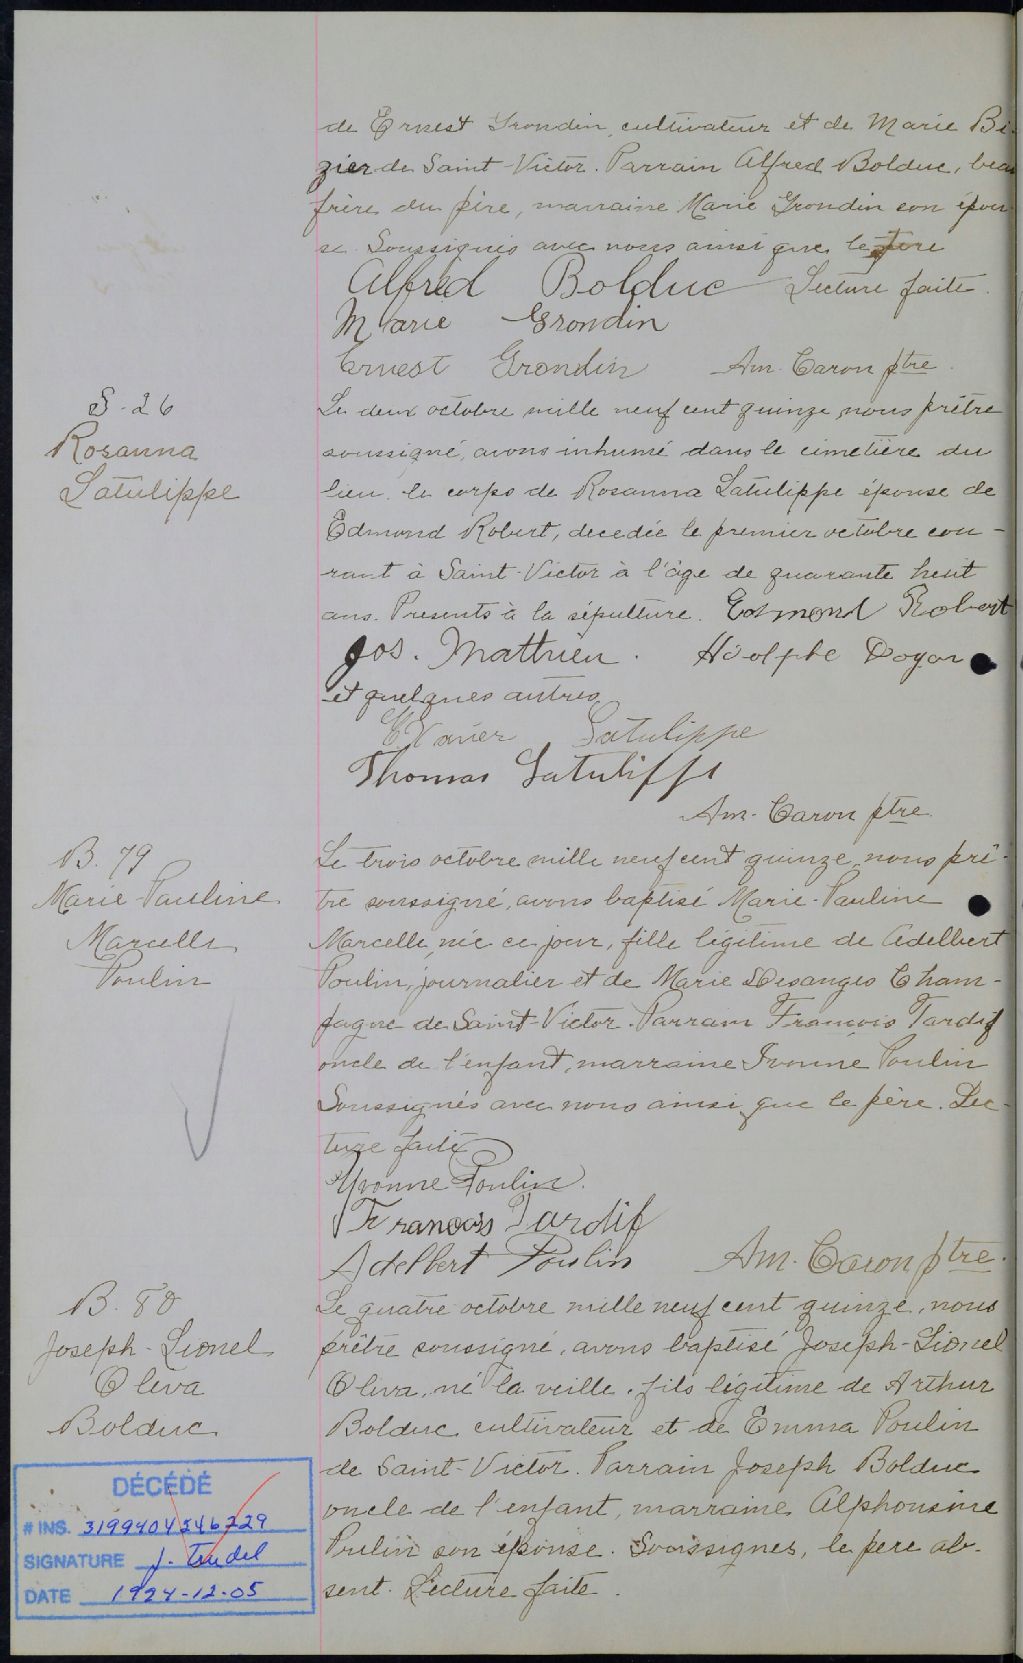 de Ernest Grondin, cultivateur et de Marie Bi-
zier de Saint-Victor. Parrain Alfred Bolduc, beau
frère du père, marraine Marie Grondin son épou-
se. Soussignés avec nous ainsi que le père
Alfred Bolduc Lecture faite.
Marie Grondin
Ernest Grondin Am. Caron ptre.
S-26
Rosanna
Latulippe
Le deux octobre mille neuf cent quinze, nous prêtre
soussigné, avons inhumé dans le cimetière du
lieu, le corps de Rosanna Latulippe épouse de
Edmond Robert, decedée le premier octobre cou-
rant à Saint-Victor à l'âge de quarante huit
ans. Presents à la sépulture. Edmond Robert
Jos. Mathieu. Adolphe Doyon
et quelques autres
Xavier Latulippe
Thomas Latulippe
Am. Caron ptre.
B. 79
Marie-Pauline
Marcelle
Poulin
Le trois octobre mille neuf cent quinze, nous prê-
tre soussigné, avons baptisé Marie-Pauline
Marcelle, née ce jour, fille légitime de Adelbert
Poulin, journalier et de Marie Desanges Cham-
pagne de Saint-Victor. Parrain François Tardif
oncle de l'enfant, marraine Ivonne Poulin
Soussignés avec nous ainsi que le père. Lec-
ture faite
Yvonne Poulin.
François Tardif
Adelbert Poulin Am. Caron ptre.
B. 80
Joseph-Lionel
Oliva
Bolduc
Le quatre octobre mille neuf cent quinze, nous
prêtre soussigné, avons baptisé Joseph-Lionel
Oliva, né la veille, fils légitime de Arthur
Bolduc cultivateur et de Emma Poulin
de Saint-Victor. Parrain Joseph Bolduc
oncle de l'enfant, marraine Alphonsine
Poulin son épouse. Soussignés, le père ab-
sent. Lecture faite.
DÉCÉDÉ
# INS. 3199404546229
SIGNATURE J. Trudel
DATE 1994-12-05